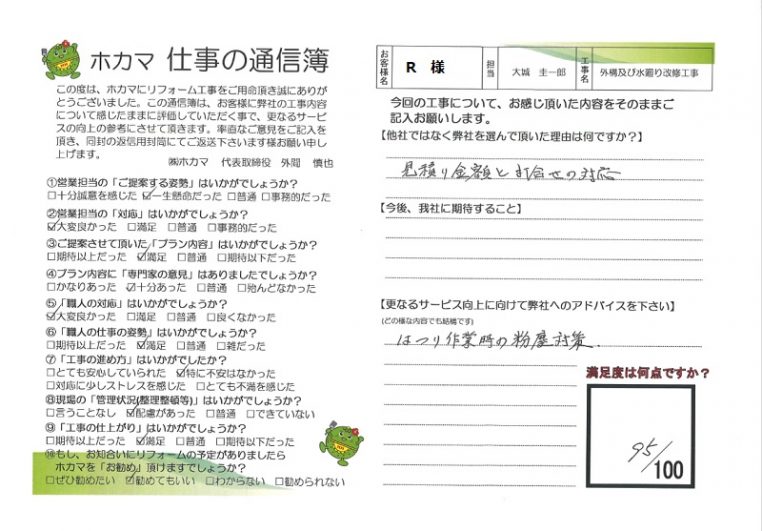 ホカマ 仕事の通信簿
この度は、ホカマにリフォーム工事をご用命頂き誠にありが
とうございました。この通信簿は、お客様に弊社の工事内容
について感じたままに評価していただく事で、更なるサービ
スの向上の参考にさせて頂きます。率直なご意見をご記入を
頂き、同封の返信用封筒にてご返送下さいます様お願い申し
上げます。
㈱ホカマ 代表取締役 外間 慎也
①営業担当の「ご提案する姿勢」はいかがでしょうか?
□十分誠意を感じた ☑一生懸命だった □普通 □事務的だった
②営業担当の「対応」はいかがでしょうか?
☑大変良かった □満足 □普通 □事務的だった
③ご提案させて頂いた「プラン内容」はいかがでしょうか?
□期待以上だった ☑満足 □普通 □期待以下だった
④プラン内容に「専門家の意見」はありましたでしょうか?
□かなりあった ☑十分あった □普通 □殆んどなかった
⑤「職人の対応」はいかがでしょうか?
☑大変良かった □満足 □普通 □良くなかった
⑥「職人の仕事の姿勢」はいかがでしょうか?
□期待以上だった ☑満足 □普通 □雑だった
⑦「工事の進め方」はいかがでしたか?
□とても安心していられた ☑特に不安はなかった
□対応に少しストレスを感じた □とても不満を感じた
⑧現場の「管理状況(整理整頓等)」はいかがでしょうか?
□言うことなし ☑配慮があった □普通 □できていない
⑨「工事の仕上がり」はいかがでしょうか?
□期待以上だった ☑満足 □普通 □期待以下だった
⑩もし、お知合いにリフォームの予定がありましたら
ホカマを「お勧め」頂けますでしょうか?
□ぜひ勧めたい ☑勧めてもいい □わからない □勧められない
お客様名 R 様 担当 大城 圭一郎 工事名 外構及び水廻り改修工事
今回の工事について、お感じ頂いた内容をそのままご
記入お願いします。
【他社ではなく弊社を選んで頂いた理由は何ですか?】
見積り金額と打合せの対応
【今後、我社に期待すること】
【更なるサービス向上に向けて弊社へのアドバイスを下さい】
(どの様な内容でも結構です)
はつり作業時の粉塵対策.
満足度は何点ですか?
95/100